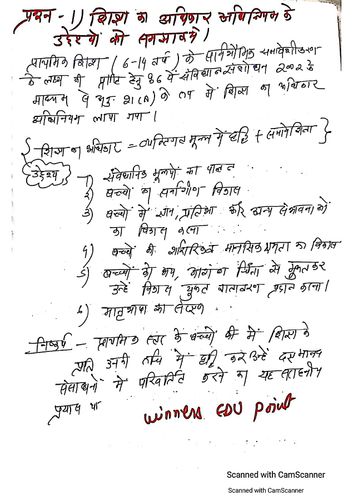 प्रश्न - 1) शिक्षा का अधिकार अधिनियम के
उद्देश्यों को समझाइये।
प्राथमिक शिक्षा (6-14 वर्ष) के सार्वभौमिक समावेशीकरण
के लक्ष्य की प्राप्ति हेतु 86 वें संविधान संशोधन 2002 के
माध्यम से अनु. 21(A) के रूप में शिक्षा का अधिकार
अधिनियम लाया गया।
शिक्षा का अधिकार = उपस्थिति मूल्य में वृद्धि + समावेशिता
उद्देश्य 1) संवैधानिक मूल्यों का पालन
2) बच्चों का सर्वांगीण विकास
3) बच्चों में ज्ञान, प्रतिभा और अन्य संभावनाओं
का विकास करना
4) बच्चों की शारीरिक मानसिक क्षमता का विकास
5) बच्चों को भय, चिंता से मुक्त कर
उन्हें विकास युक्त वातावरण प्रदान करना।
6) मातृभाषा का संरक्षण
निष्कर्ष - प्राथमिक स्तर के बच्चों की में शिक्षा के
प्रति उनकी रुचि में वृद्धि कर उन्हें दक्ष मानव
संसाधनों में परिवर्तित करने का यह सराहनीय
प्रयास था
Winners EDU Point
Scanned with CamScanner
Scanned with CamScanner